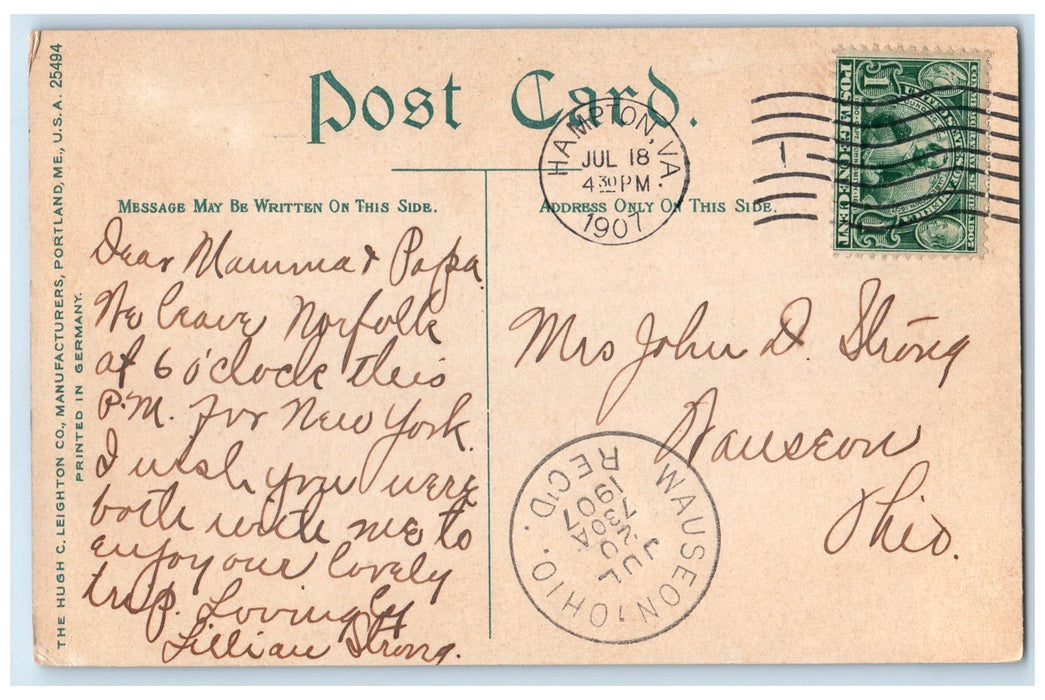 THE HUGH C. LEIGHTON CO., MANUFACTURERS, PORTLAND, ME., U.S.A. 25494
PRINTED IN GERMANY.
Post Card.
MESSAGE MAY BE WRITTEN ON THIS SIDE.
ADDRESS ONLY ON THIS SIDE.
Dear Mamma & Papa.
We leave Norfolk
at 6 o'clock this
P.M. for New York.
I wish you were
both with me to
enjoy our lovely
trip. Lovingly
Lillian Strong.
HAMPTON, VA.
JUL 18
4 30 PM
1907
1
UNITED STATES OF AMERICA
POSTAGE ONE CENT
Mrs John D. Strong
Wauseon
Ohio.
WAUSEON, OHIO.
JUL
20
730A
1907
REC'D.